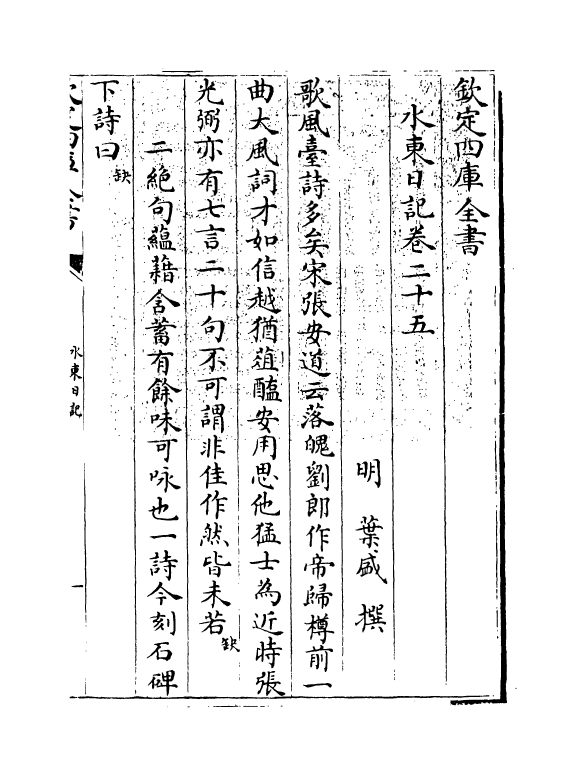 欽定四庫全書
水東日記卷二十五
明 葉盛 撰
歌風臺詩多矣宋張安道云落魄劉郎作帝歸樽前一
曲大風詞才如信越猶葅醢安用思他猛士為近時張
光弼亦有七言二十句不可謂非佳作然皆未若缺
二絶句蘊藉含蓄有餘味可咏也一詩今刻石碑
下詩曰缺
水東日記
一